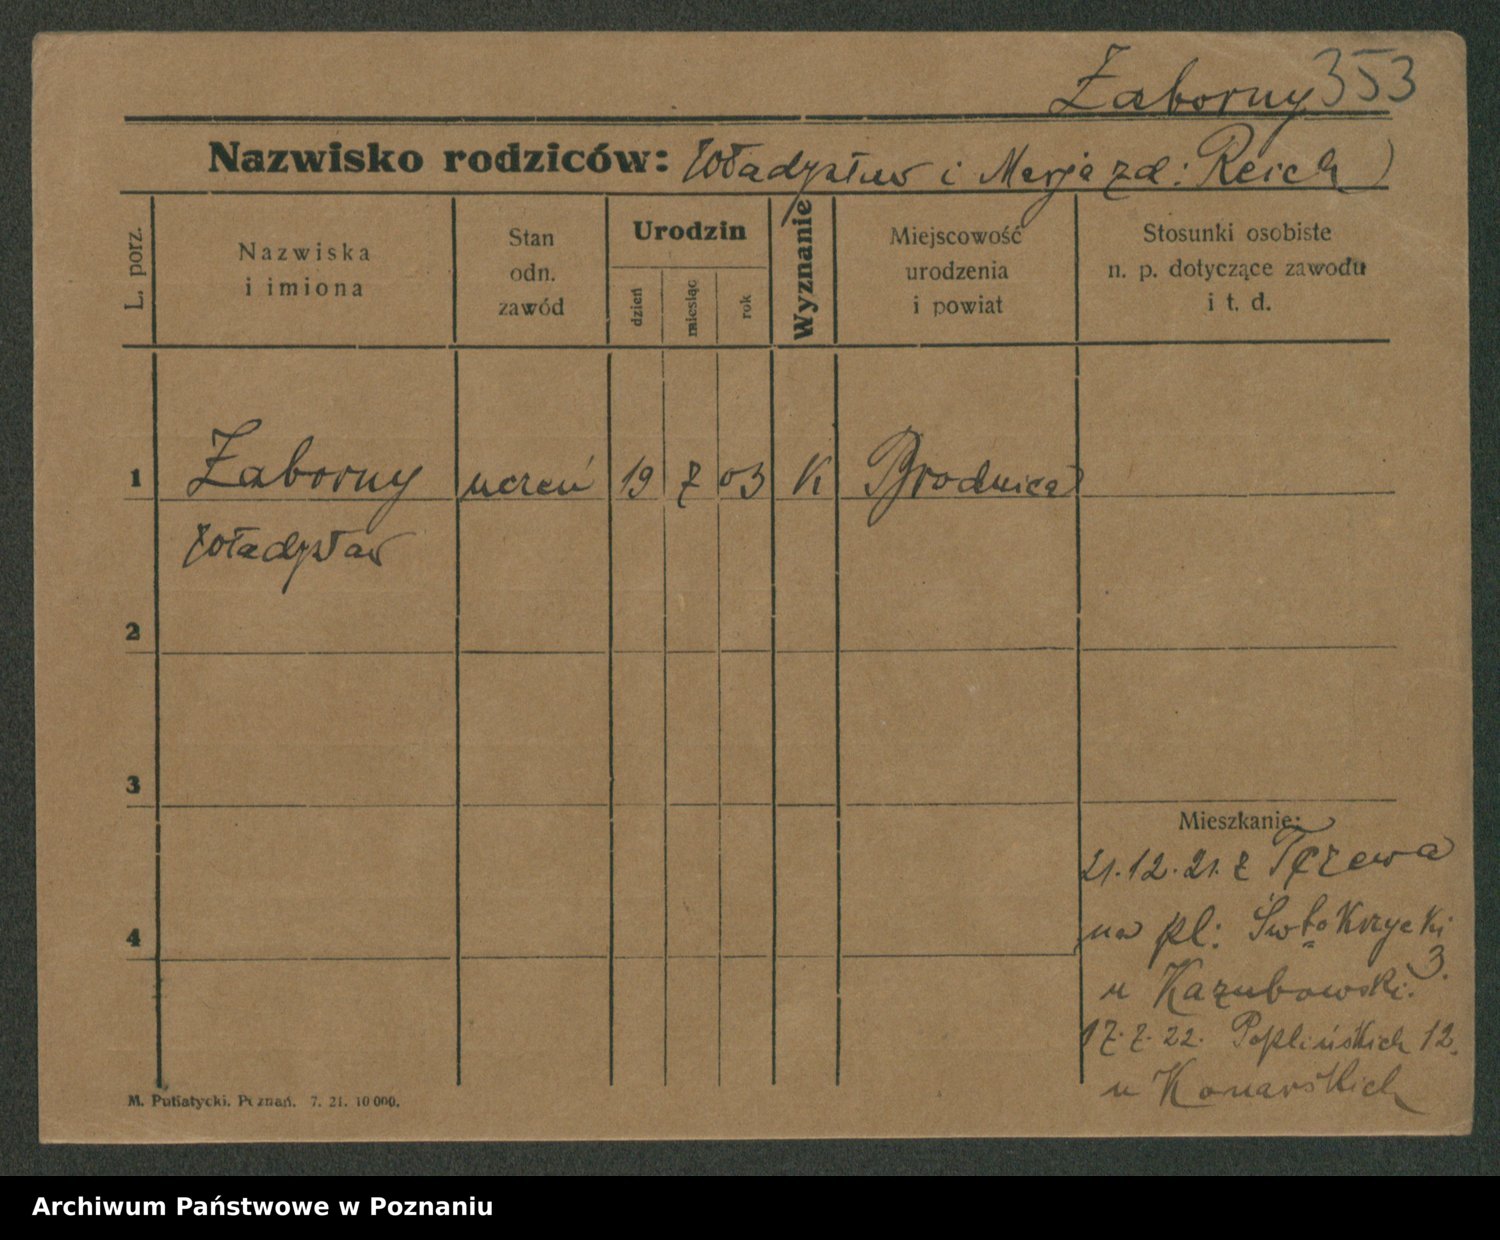 Zaborny 353
Nazwisko rodziców: Władysław i Marja zd: Reich)
L. porz.
Nazwiska
i imiona
Stan
odn.
zawód
Urodzin
dzień
miesiąc
rok
Wyznanie
Miejscowość
urodzenia
i powiat
Stosunki osobiste
n. p. dotyczące zawodu
i t. d.
1 Zaborny uczeń 19 7 03 K Brodnica
Władysław
2
3
Mieszkanie:
21.12.21. z Tczewa
4
na pl: Śwto Krzycki
3.
u Kazubowski.
17.7.22. Poplińskich 12.
u Konarskich
M. Putiatycki. Poznań. 7. 21. 10 000.
Archiwum Państwowe w Poznaniu